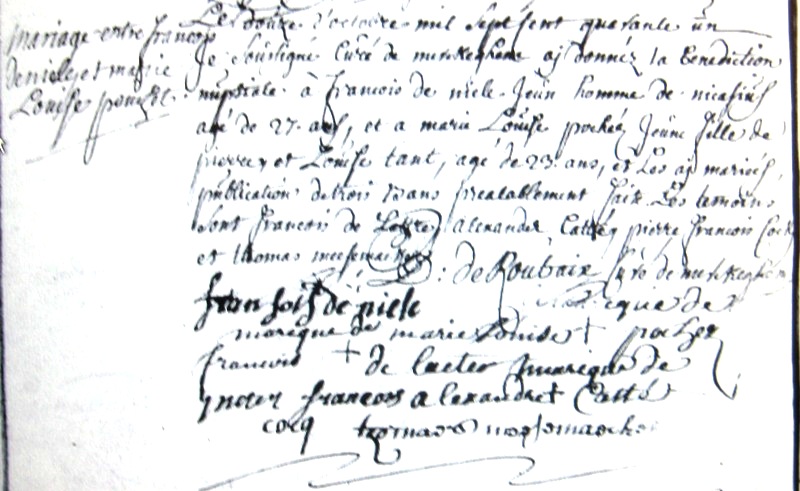 mariage entre francois
de niele et marie
Louise pouchez
Le douze d'octobre mil sept cent quarante un
Je soussigné Curé de merckeghem aj donnéz la Benediction
nuptiale à francois de niele Jeun homme de nicasius
agé de 27 ans, et a marie Louise pochéz Jeune fille de
pierre et Louise tant, agé de 23 ans, et Les aj mariés,
publication de trois Bans prealablement faite Les temoins
sont francois de alexander Cattéy pierre francois Cocq
et thomas
: de Roubaix Curé de merckeghem
fransois de niele
marique de marie Louise + pochez
francois + de Cueter marique de
francois alexandre Catté
cocq thomas